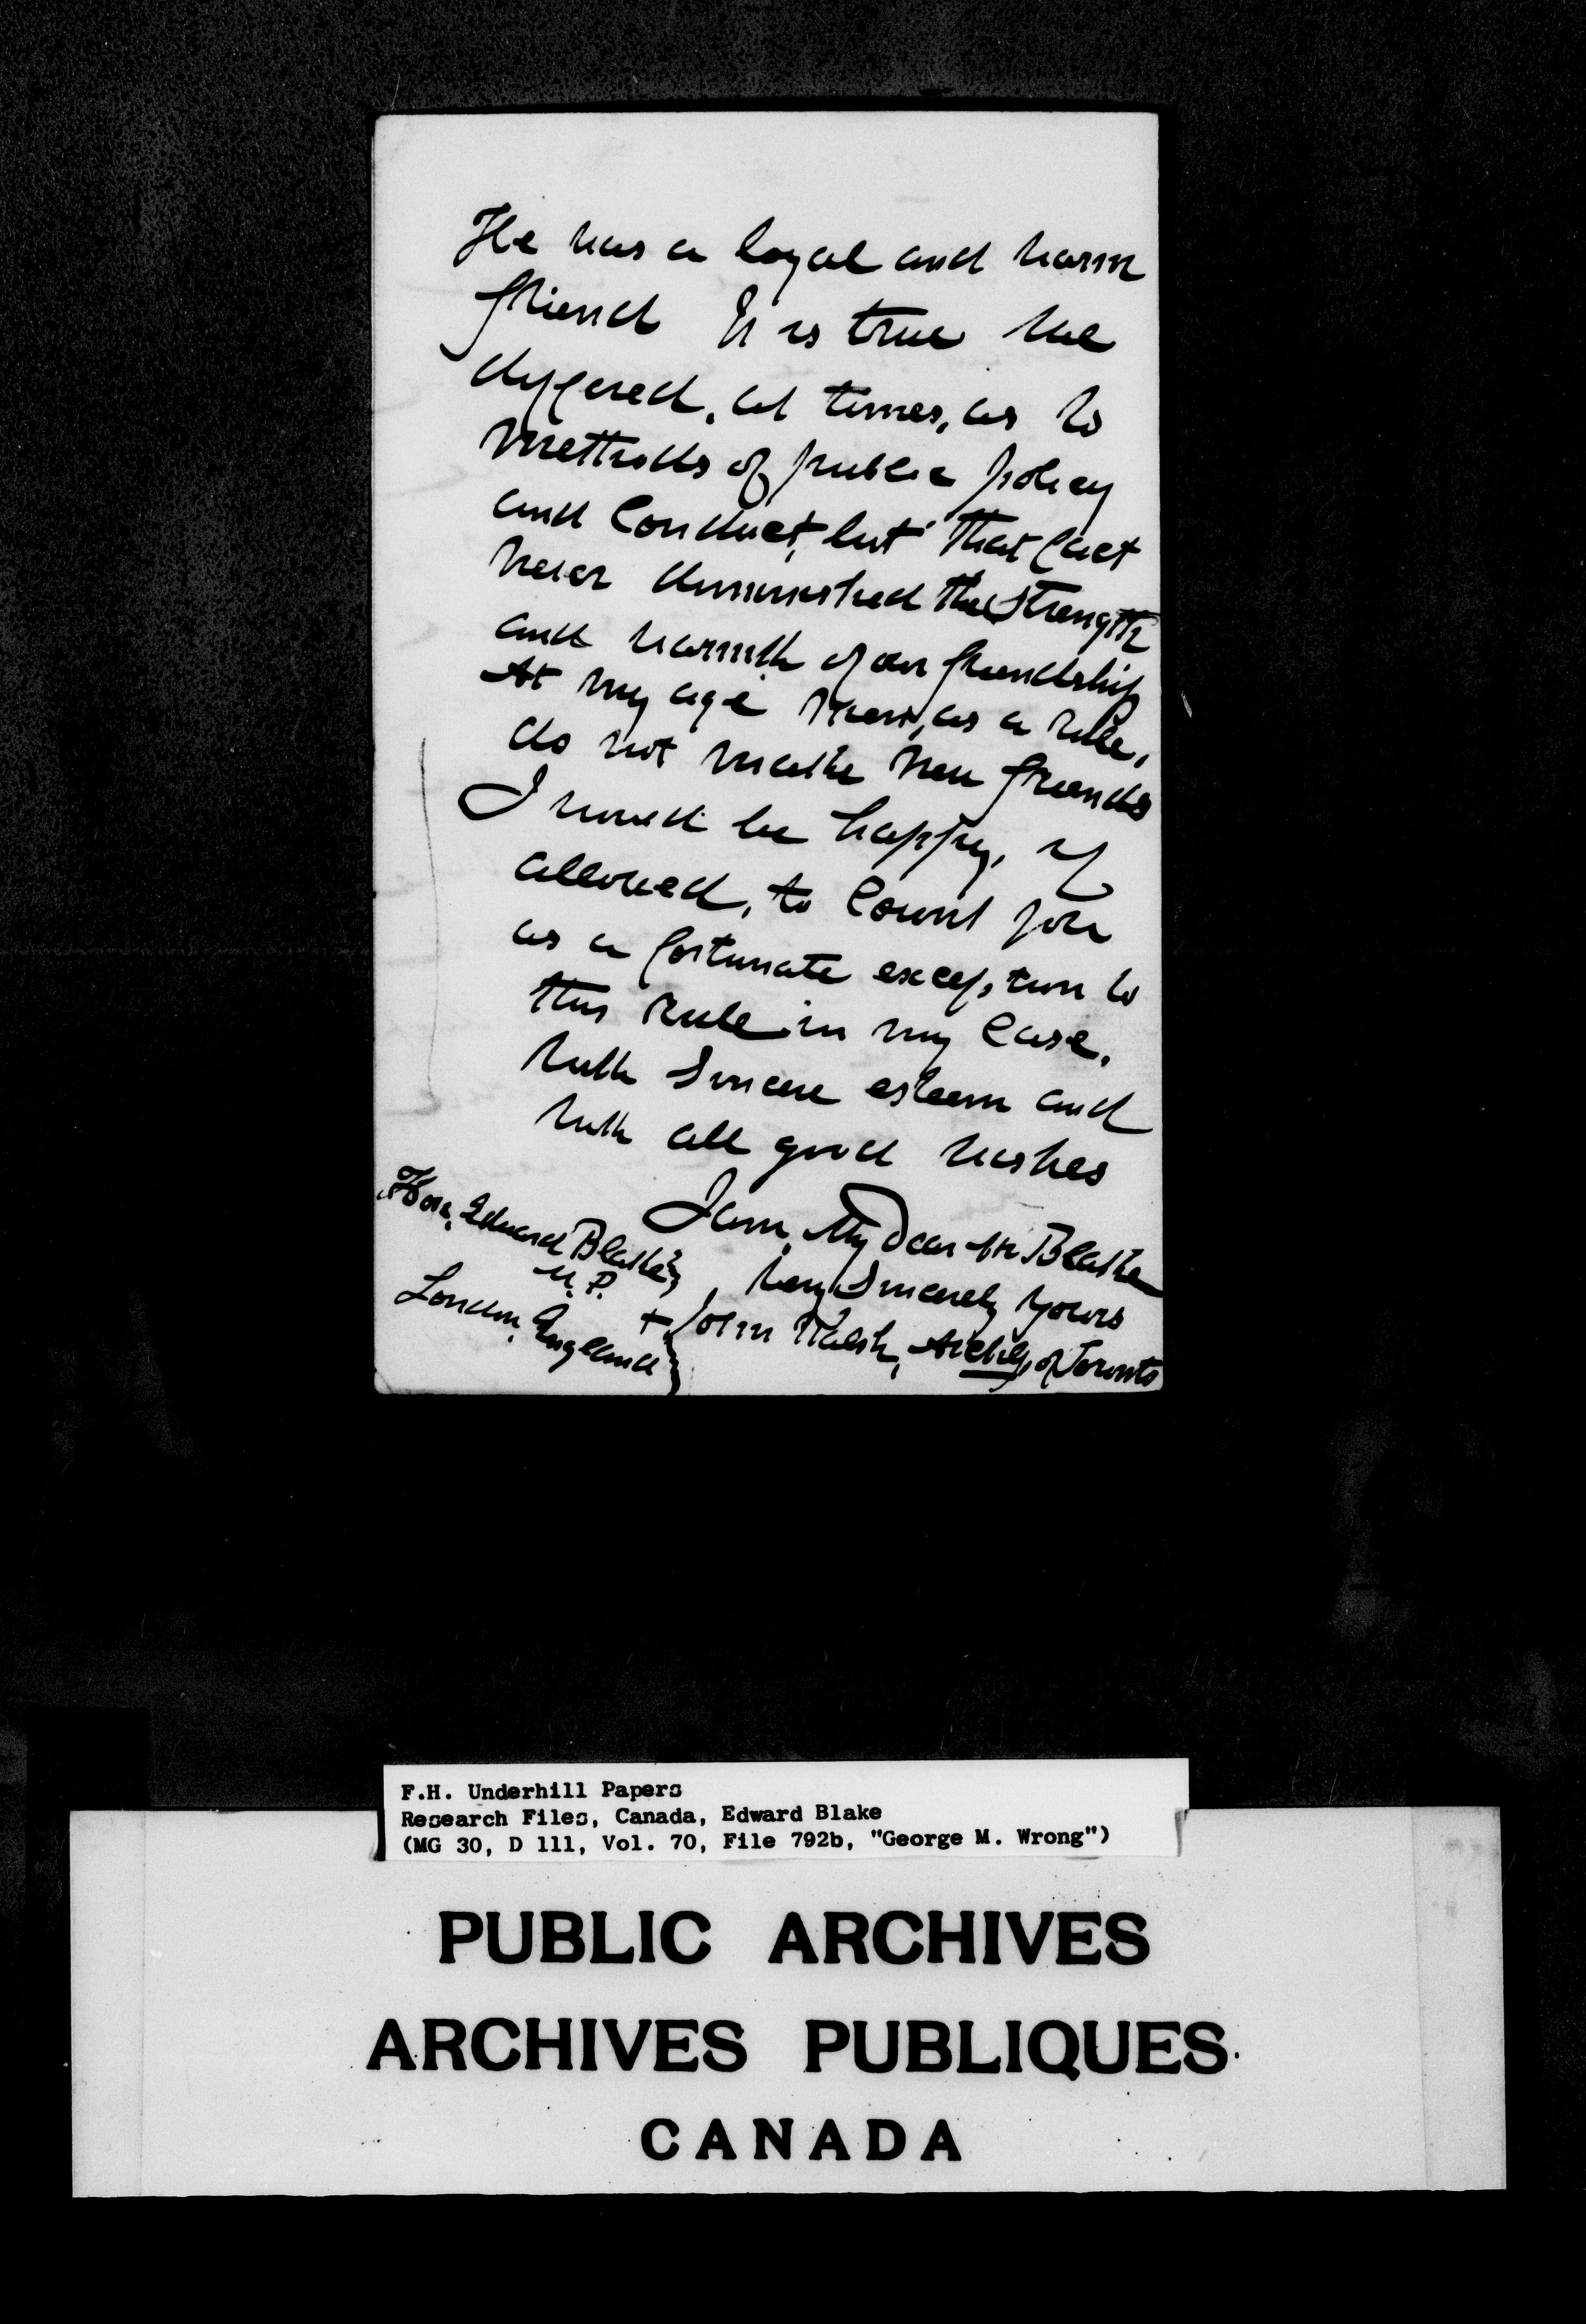 He was a loyal and warm
friend It is true we
differed, at times, as to
methods of public policy
and conduct, but that fact
never diminished the strength
and warmth of our friendship
At my age men, as a rule,
do not make new friends
I would be happy, if
allowed, to count you
as a fortunate exception to
this rule in my case.
With sincere esteem and
with all good wishes
I am, My Dear Mr Blake
Very Sincerely Yours
+ John Walsh, Archbp of Toronto
Hon. Edward Blake
M.P.
London, England
F.H. Underhill Papers
Research Files, Canada, Edward Blake
(MG 30, D 111, Vol. 70, File 792b, "George M. Wrong")
PUBLIC ARCHIVES
ARCHIVES PUBLIQUES
CANADA